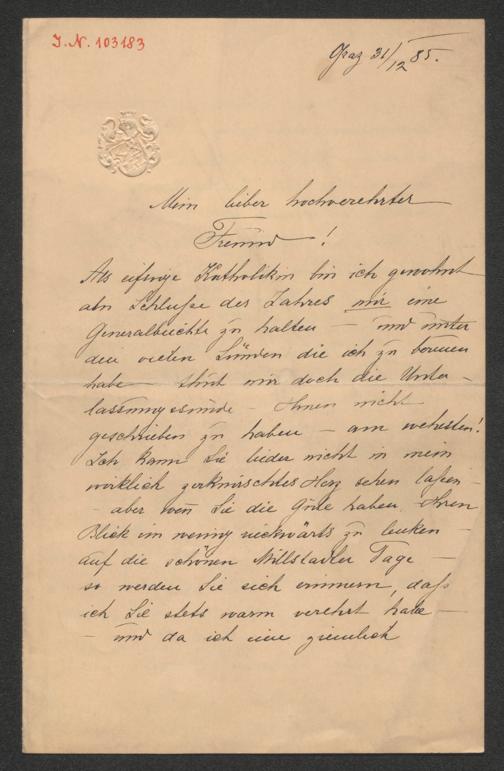 I. N. 103183
Graz 31/12 85.
Mein lieber hochverehrter
Freund !
Als eifrige Katholikin bin ich gewohnt
am Schluße des Jahres mir eine
Generalbeichte zu halten – und unter
den vielen Sünden die ich zu bereuen
habe – thut mir doch die Unter-
lassungssünde – Ihnen nicht
geschrieben zu haben – am wehesten!
Ich kann Sie leider nicht in mein
wirklich zerknirschtes Herz sehen laßen –
– aber wen Sie die Güte haben Ihren
Blick ein wenig rückwärts zu lenken –
auf die schönen Millstadter Tage –
so werden Sie sich erinnern, daß
ich Sie stets warm verehrt habe –
– und da ich eine ziemlich